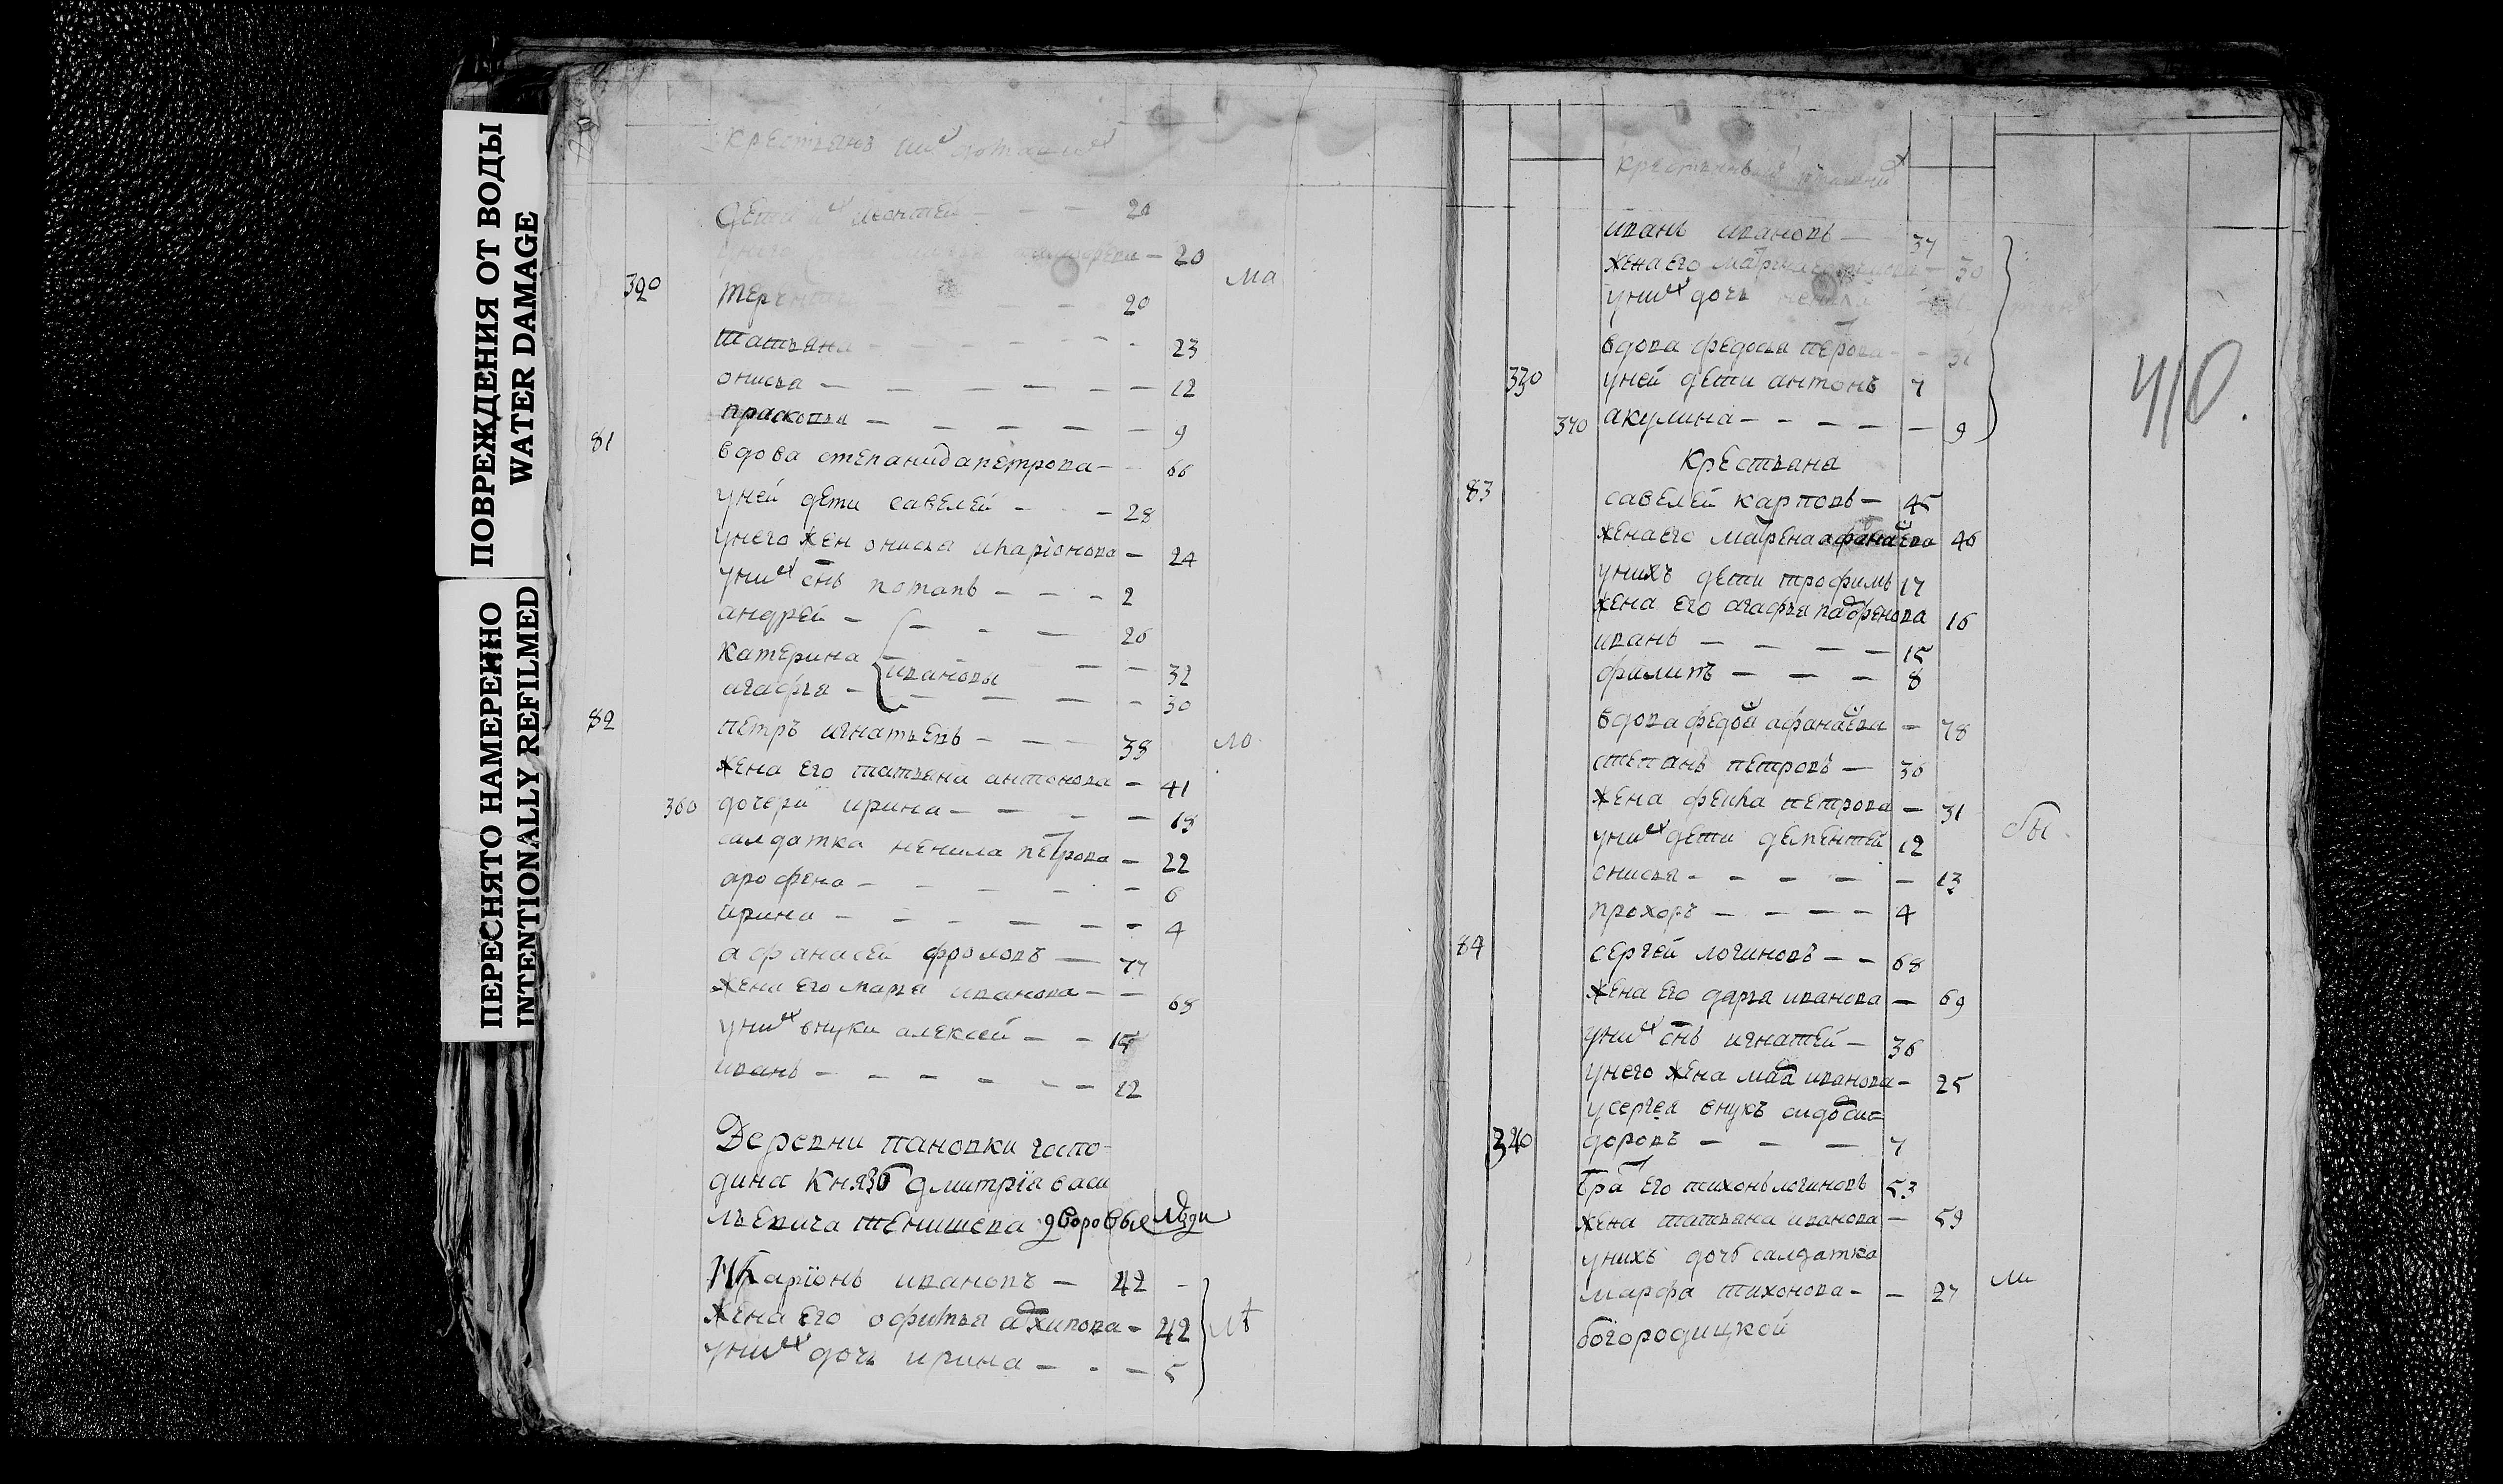 ПОВРЕЖДЕНИЯ ОТ ВОДЫ
WATER DAMAGE
ПЕРЕСНЯТО НАМЕРЕННО
INTENTIONALLY REFILMED
крестьянъ
дети их леонтей — — — 20
— 20
320 20 ма
татьяна — — — — — — 23
онисья — — — — — — 12
прасковья — — — — — — 9
81 вдова степанида петрова — 66
у ней дети савелей — — — 28
у него жен онисья иларіонова — 24
у них снъ потапъ — — — 2
андрей — — — — 26
катерина ивановы — — 32
агафья — — — — — 30
82 петръ игнатьевъ — — — 38 ло
жена его татьяна антонова — 41
360 дочери ирина — — — — 15
салдатка ненила петрова — 22
арофена — — — — — 6
ирина — — — — — — 4
афанасей фроловъ — 77
жена его марья иванова — — 65
у них внуки алексей — — 15
иванъ — — — — — — 12
Деревни пановки госпо-
дина Князя дмитрія васи
льевича тенишева дворовые люди
Иларіонъ ивановъ — 42
жена его офимья архипова — 42 ле
у них дочь ирина — — — 5
крестьянъ
иванъ ивановъ — 37
жена его — 30
у них дочь
вдова федосья петрова — — 31
330 у ней дети антонъ 7
370 акулина — — — — — 9
410.
Крестьяна
83 савелей карповъ — 45
жена его марена афанаева 46
у нихъ дети трофимъ 17
жена его агафья парфенова 16
иванъ — — — — — 15
филипъ — — — 8
вдова федося афанасева — 78
степанъ петровъ — 36
жена фекла петрова — 31 лы.
у них дети дементей 12
онисья — — — — — — 13
прохоръ — — — — 4
84 сергей логиновъ — — 68
жена его дарья иванова — 69
у них снъ игнатей — 36
у него жена иванова — 25
у сергея внукъ сидоръ си=
340 доровъ — — — 7
братъ его тихонъ логиновъ 53
жена татьяна иванова — 59
у нихъ дочь салдатка
марфа тихонова — — 27 ли
богородицкой